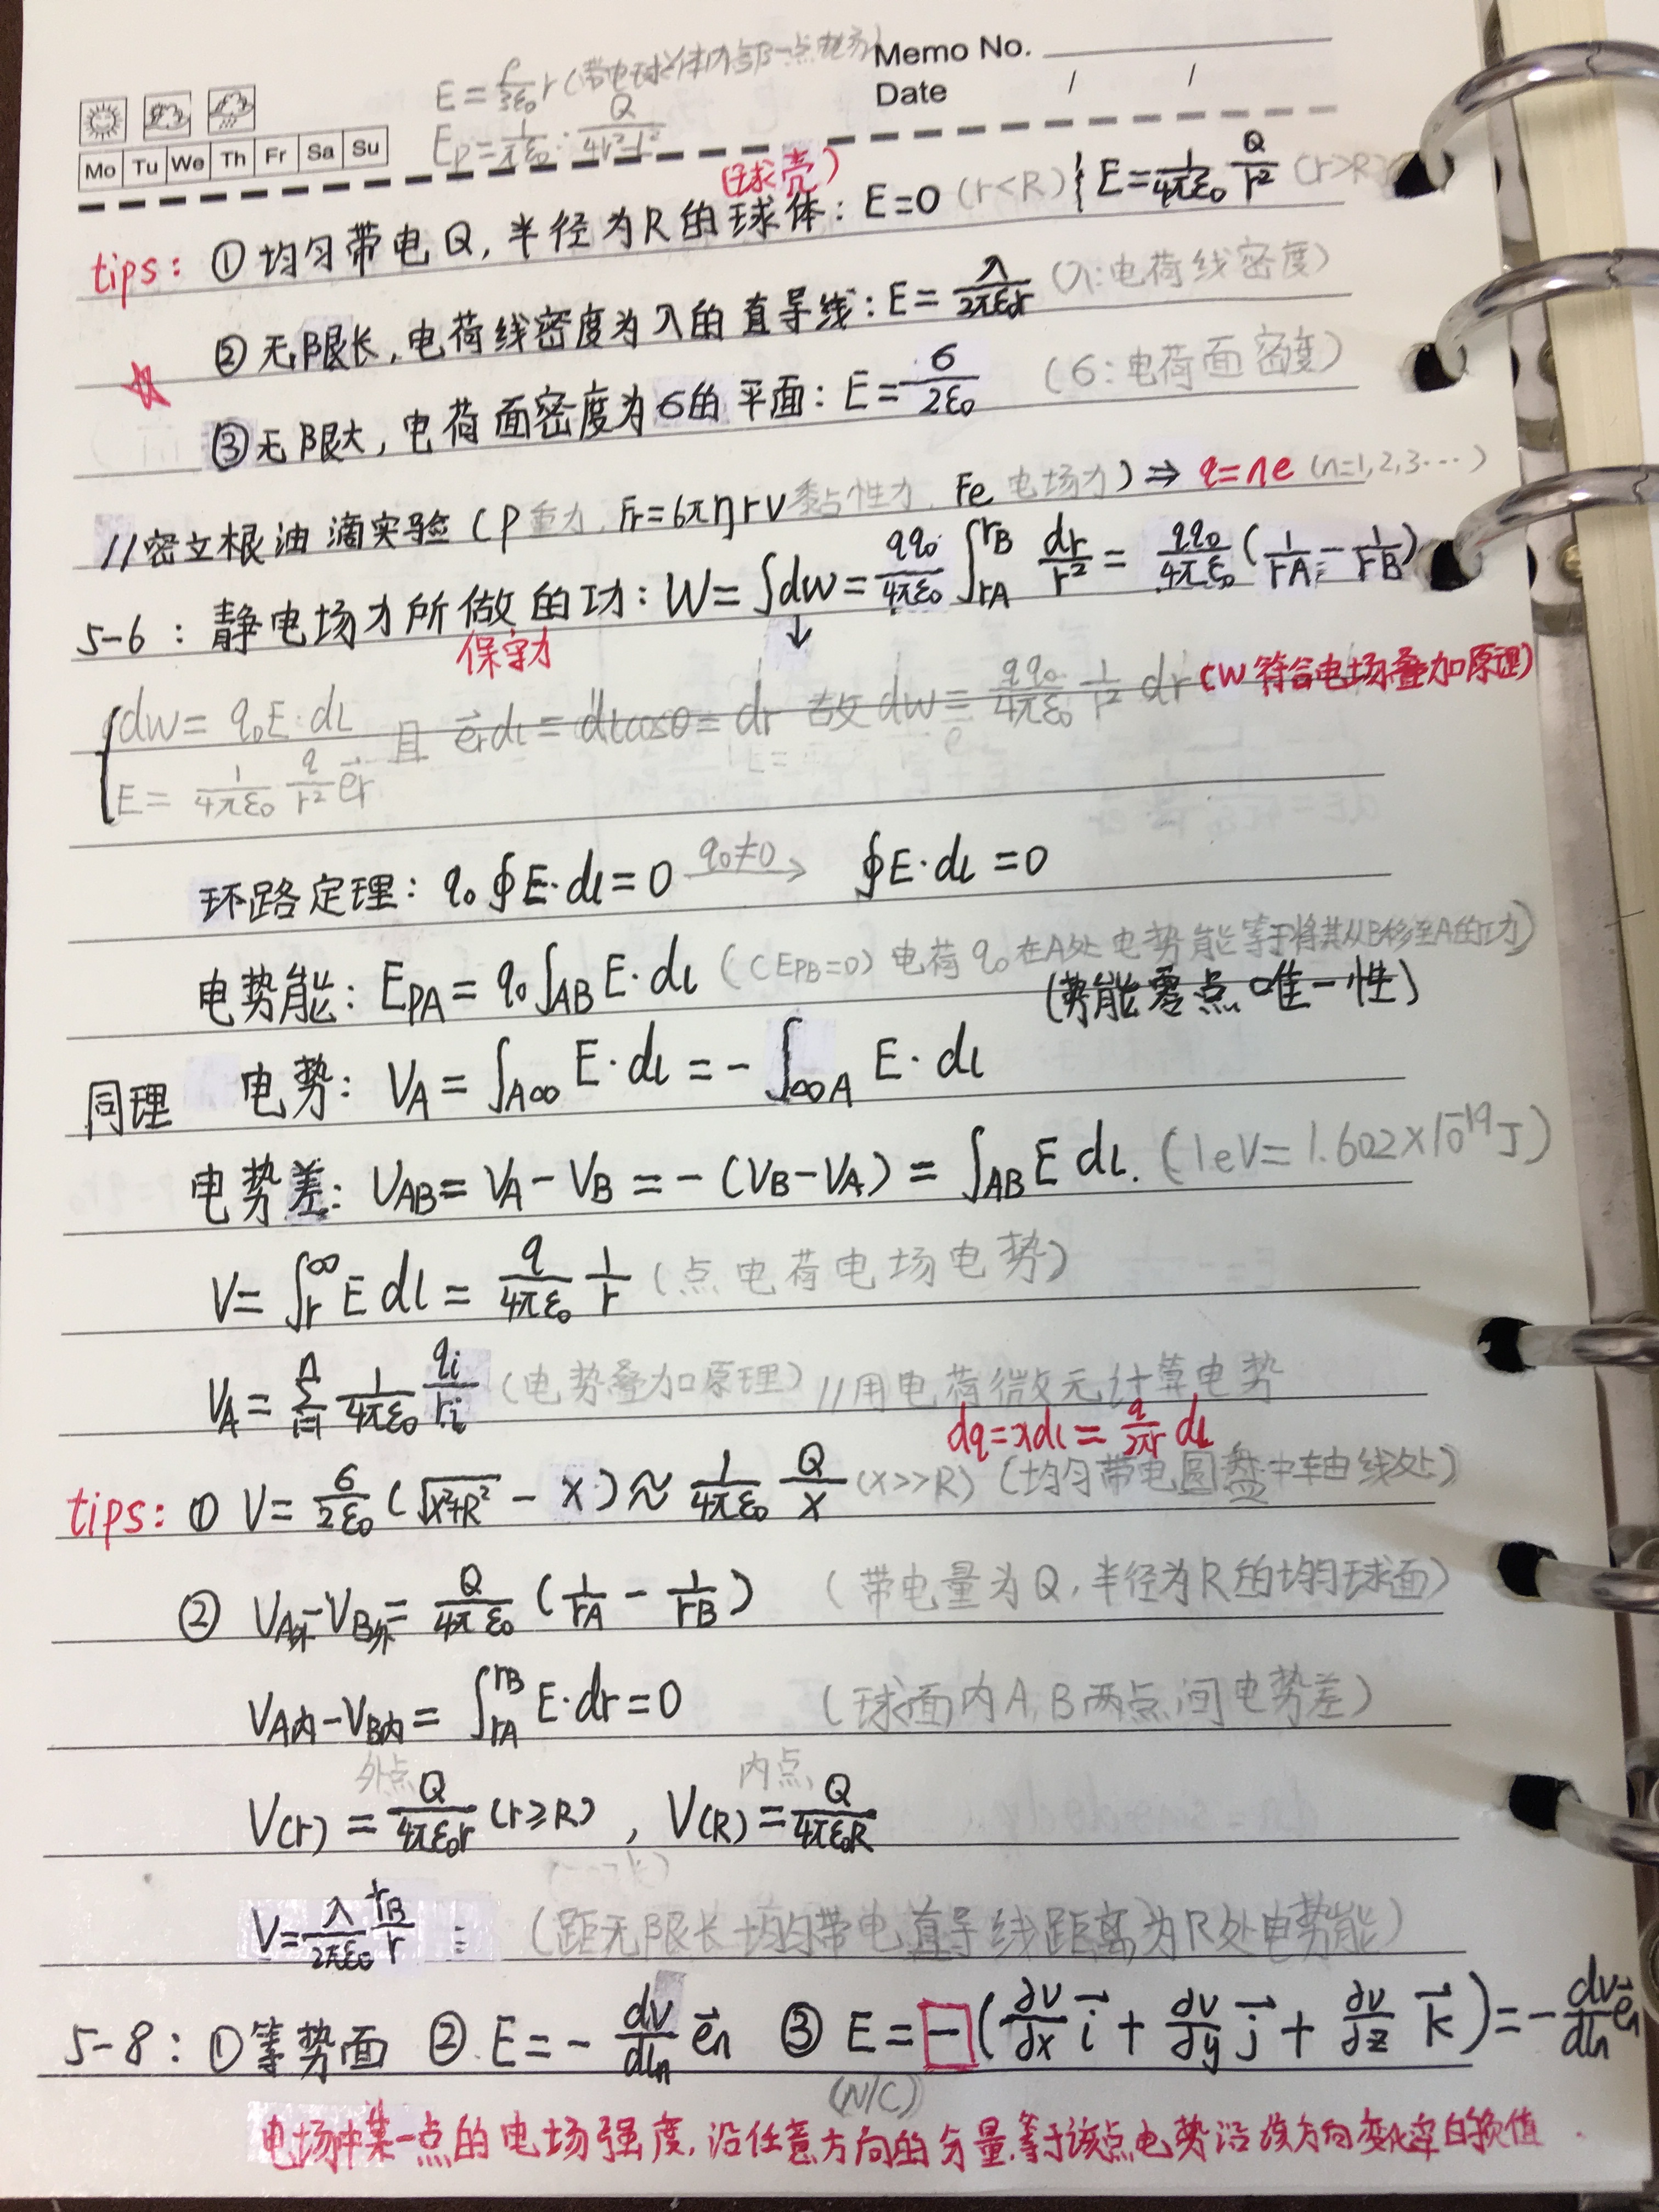 Memo No.
Date / /
Mo Tu We Th Fr Sa Su
E = ρ/3ε₀ r (带电球体内部一点电场)
Ep = 1/πε₀ · Q/4r²-L²
(球壳)
tips: ① 均匀带电Q, 半径为R的球体: E=0 (r<R) { E = 1/4πε₀ Q/r² (r>R)
② 无限长, 电荷线密度为λ的直导线: E = λ/2πε₀r (λ:电荷线密度)
☆ ③ 无限大, 电荷面密度为6的平面: E = 6/2ε₀ (6:电荷面密度)
//密立根油滴实验 (P重力, Fr=6πηrv 黏性力, Fe 电场力) ⇒ q=ne (n=1,2,3···)
5-6: 静电场力所做的功: W = ∫dw = qq₀/4πε₀ ∫rA rB dr/r² = qq₀/4πε₀ (1/rA - 1/rB)
保守力 ↓
(W符合电场叠加原理)
{ dw = q₀E·dl 且 e⃗rdl = dlcosθ = dr 故 dw = qq₀/4πε₀ 1/r² dr
E = 1/4πε₀ q/r² e⃗r
环路定理: q₀∮E·dl=0 q₀≠0→ ∮E·dl=0
电势能: EPA = q₀∫AB E·dl ((EPB=0) 电荷q₀在A处电势能等于将其从B移至A的功)
(势能零点唯一性)
同理 电势: VA = ∫A∞ E·dl = -∫∞A E·dl
电势差: UAB = VA - VB = -(VB-VA) = ∫AB E dl. (1eV=1.602×10⁻¹⁹J)
V = ∫r ∞ E dl = q/4πε₀ 1/r (点电荷电场电势)
VA = Σ i=1 n 1/4πε₀ qi/ri (电势叠加原理) //用电荷微元计算电势
dq = λdl = q/2πr dl
tips: ① V = 6/2ε₀ (√x²+R² - x) ≈ 1/4πε₀ Q/x (x>>R) (均匀带电圆盘中轴线处)
② VA外-VB外 = Q/4πε₀ (1/rA - 1/rB) (带电量为Q, 半径为R的均匀球面)
VA内-VB内 = ∫rA rB E·dr=0 (球面内A,B两点间电势差)
外点 内点
V(r) = Q/4πε₀r (r≥R), V(R) = Q/4πε₀R
V = λ/2πε₀ rB/r (距无限长均匀带电直导线距离为R处电势能)
5-8: ①等势面 ② E = - dv/dln e⃗n ③ E = -(∂v/∂x i⃗ + ∂v/∂y j⃗ + ∂v/∂z k⃗) = - dv/dln e⃗n
(N/C)
电场中某一点的电场强度, 沿任意方向的分量, 等于该点电势沿该方向变化率的负值.